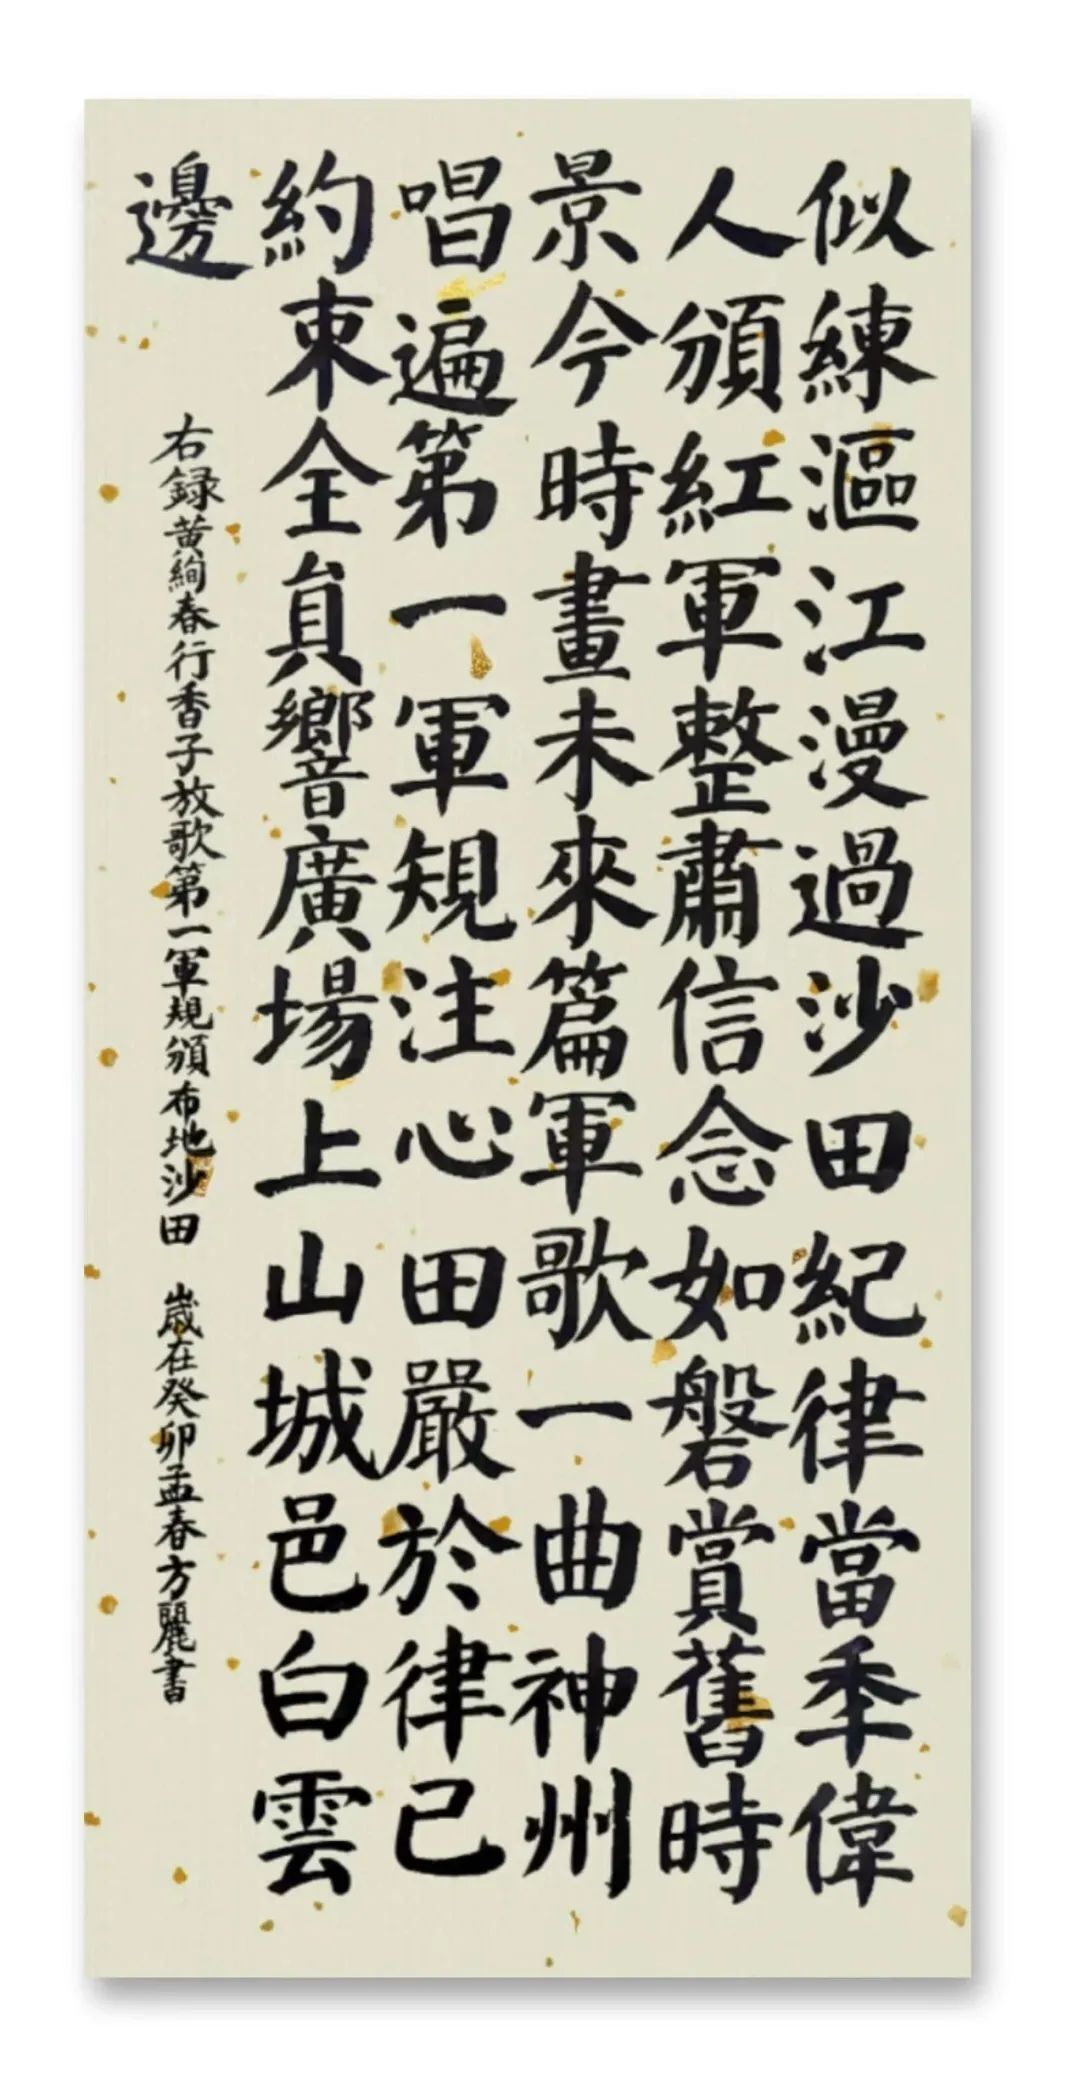 似練漚江漫過沙田紀律當季偉
人頒紅軍整肅信念如磐賞舊時
景今時畫未來篇軍歌一曲神州
唱遍第一軍規注心田嚴於律己
約束全員響廣場上山城邑白雲
邊
右録黄絢春行香子放歌第一軍規頒布地沙田 歲在癸卯孟春方麗書